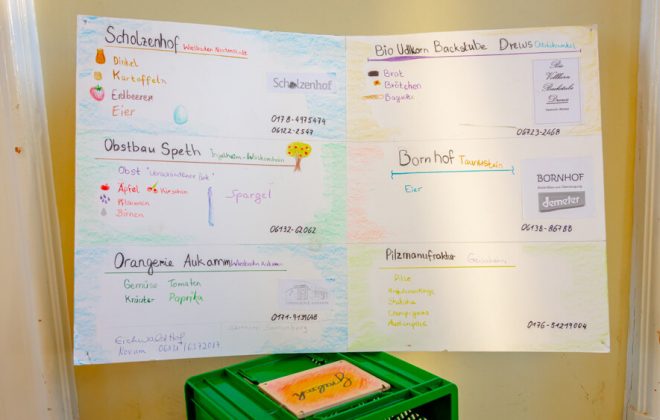 Scholzenhof Wiesbaden Nordenstadt
Dinkel
Kartoffeln
Erdbeeren
Eier
Scholzenhof
0178-4975474
06122-2547
Bio Vollkorn Backstube Drews Oestrich-Winkel
Brot
Brötchen
Baguette
Bio
Vollkorn
Backstube
Drews
06723-2468
Obstbau Speth Ingelheim-
Obst
Äpfel Kirschen
Pflaumen
Birnen
Spargel
06132-62062
Bornhof Taunusstein
Eier
BORNHOF
demeter
06138-86788
Orangerie Aukamm Wiesbaden Aukamm
Gemüse Tomaten
Kräuter Paprika
0171-9131648
Pilzmanufraktur
Pilze
Kräuterseitlinge
Shiitake
Champignons
Austernpilze
0176-51219004